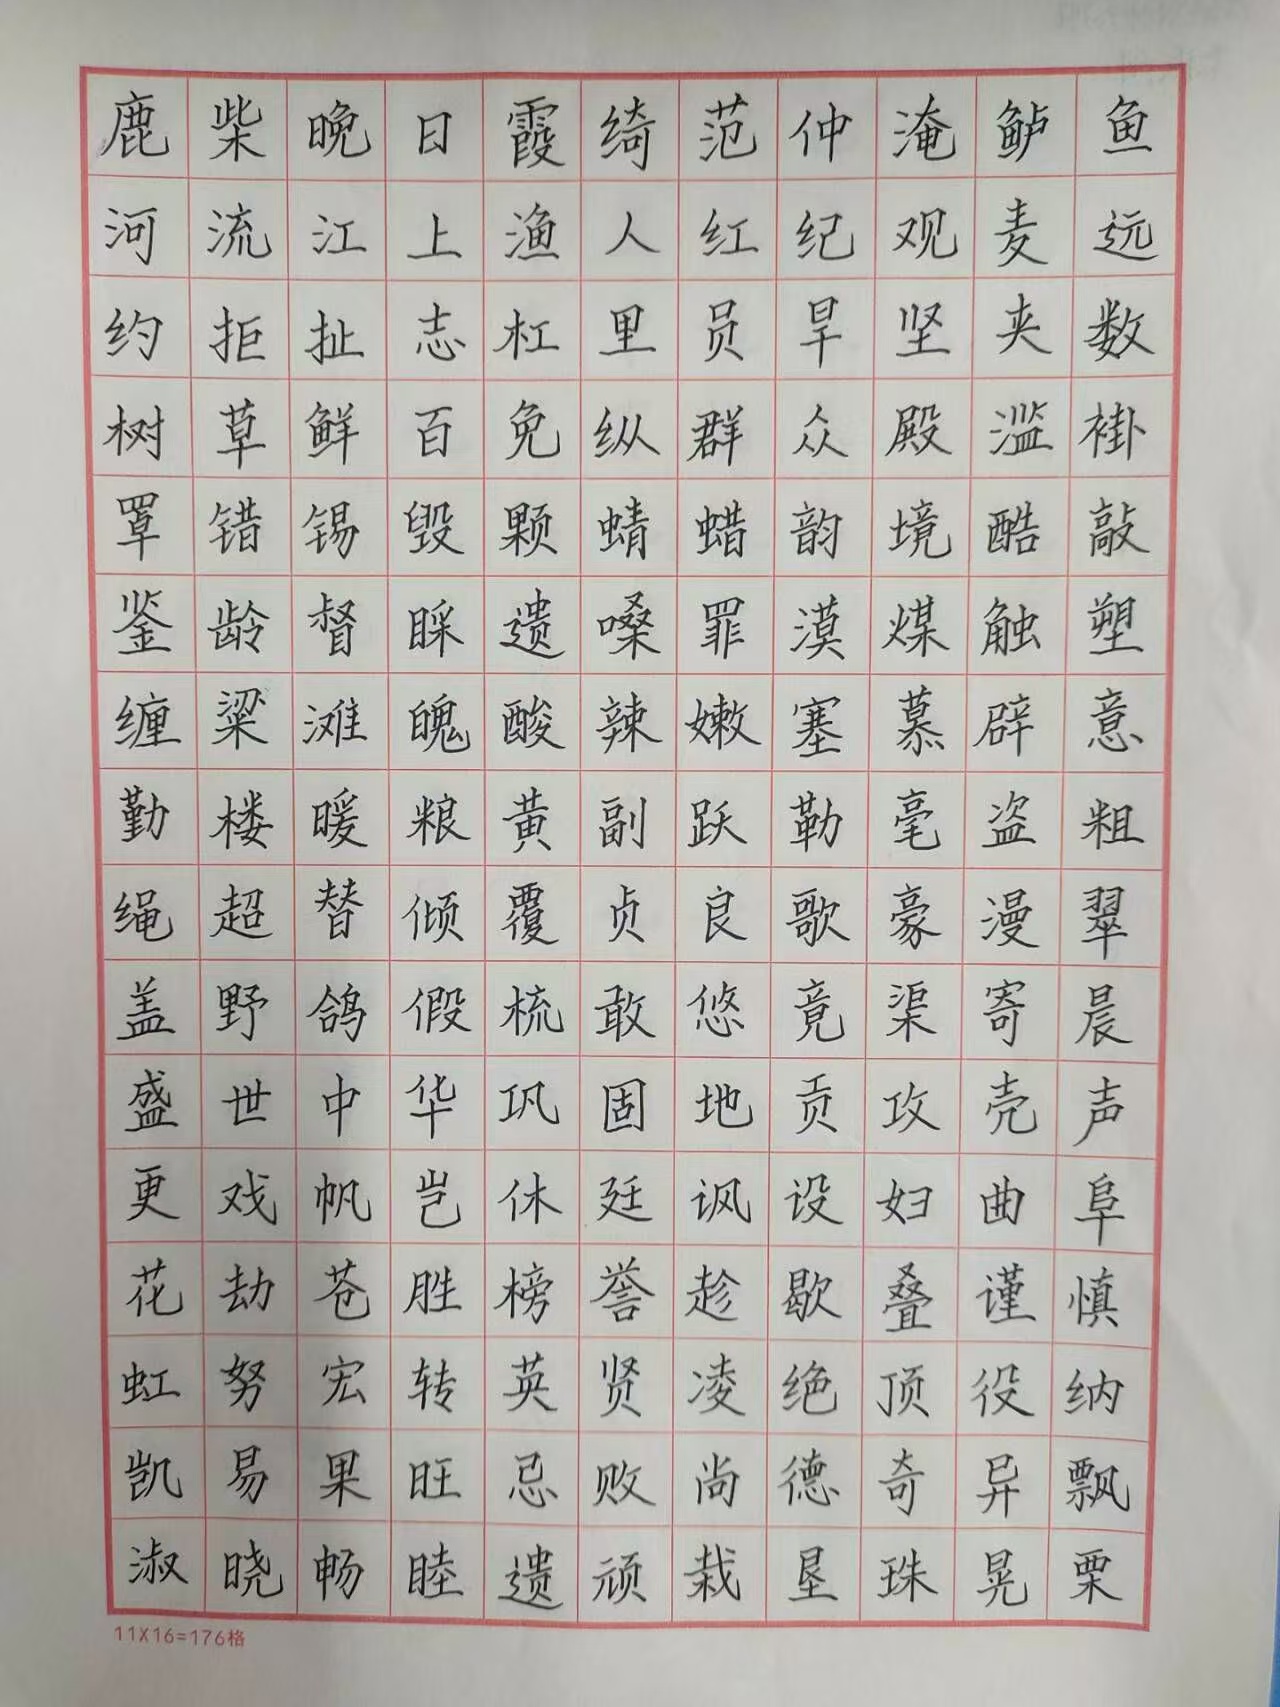 鹿柴晚日霞绮范仲淹鲈鱼
河流江上渔人红纪观麦远
约拒扯志杠里员旱坚夹数
树草鲜百免纵群众殿滥褂
罩错锡毁颗蜻蜡韵境酷敲
鉴龄督睬遗嗓罪漠煤触塑
缠粱滩魄酸辣嫩塞慕辟意
勤楼暖粮黄副跃勒毫盗粗
绳超替倾覆贞良歌豪漫翠
盖野鸽假梳敢悠竟渠寄晨
盛世中华巩固地贡攻壳声
更戏帆岂休廷讽设妇曲阜
花劫苍胜榜誉趁歇叠谨慎
虹努宏转英贤凌绝顶役纳
凯易果旺忌败尚德奇异飘
淑晓畅睦遗顽栽垦珠晃栗
11X16=176格